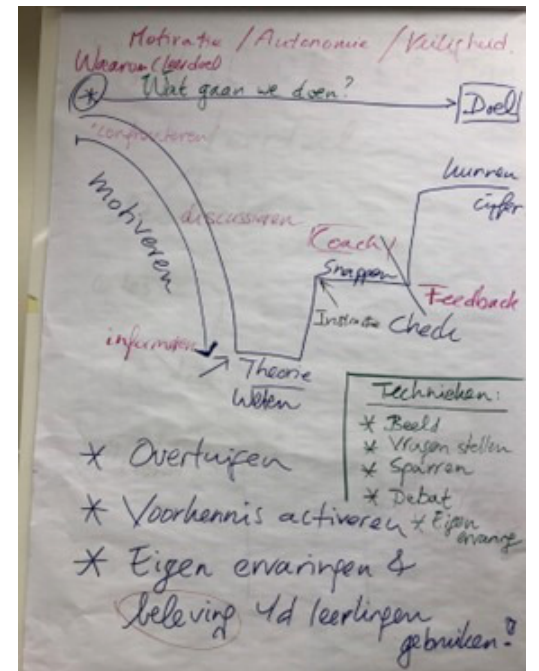 Motivatie / Autonomie / Veiligheid.
Waarom (leerdoel
* Wat gaan we doen? Doel
confronteren
motiveren
discussieren
informeren
Theorie
Weten
Coach
Snappen
Instructie
Check
Feedback
kunnen
cijfer
Technieken:
* Beeld
* Vragen stellen
* Sparren
* Debat
* Eigen
ervaring
* Overtuigen
* Voorkennis activeren
* Eigen ervaringen &
beleving vd leerlingen
gebruiken!